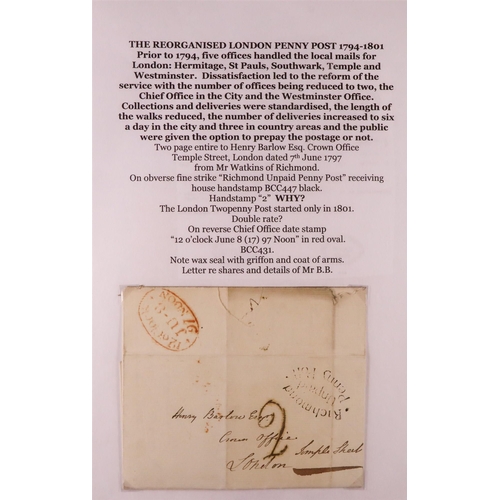 THE REORGANISED LONDON PENNY POST 1794-1801
Prior to 1794, five offices handled the local mails for
London: Hermitage, St Pauls, Southwark, Temple and
Westminster. Dissatisfaction led to the reform of the
service with the number of offices being reduced to two, the
Chief Office in the City and the Westminster Office.
Collections and deliveries were standardised, the length of
the walks reduced, the number of deliveries increased to six
a day in the city and three in country areas and the public
were given the option to prepay the postage or not.
Two page entire to Henry Barlow Esq. Crown Office
Temple Street, London dated 7th June 1797
from Mr Watkins of Richmond.
On obverse fine strike “Richmond Unpaid Penny Post” receiving
house handstamp BCC447 black.
Handstamp “2” WHY?
The London Twopenny Post started only in 1801.
Double rate?
On reverse Chief Office date stamp
“12 o’clock June 8 (17) 97 Noon” in red oval.
BCC431.
Note wax seal with griffon and coat of arms.
Letter re shares and details of Mr B.B.
12 o'clock
JU-8
97 NOON
Richmond
Unpaid
Penny Post
2
Henry Barlow Esq
Crown Office
Temple Street
London